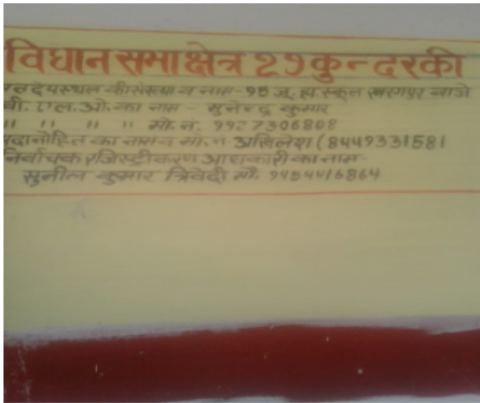 विधान सभा क्षेत्र 29 कुन्दरकी
मतदेय स्थल की संख्या व नाम - 95 जू. हा. स्कूल खरगपुर बाजे
बी. एल. ओ. का नाम - मुनेन्द्र कुमार
" " " " मो. नं. 9927306808
पदाभिहित का नाम व मो. नं अखिलेश (8449331581
निर्वाचक रजिस्ट्रीकरण अधिकारी का नाम -
सुनील कुमार त्रिवेदी मो. 9454416864